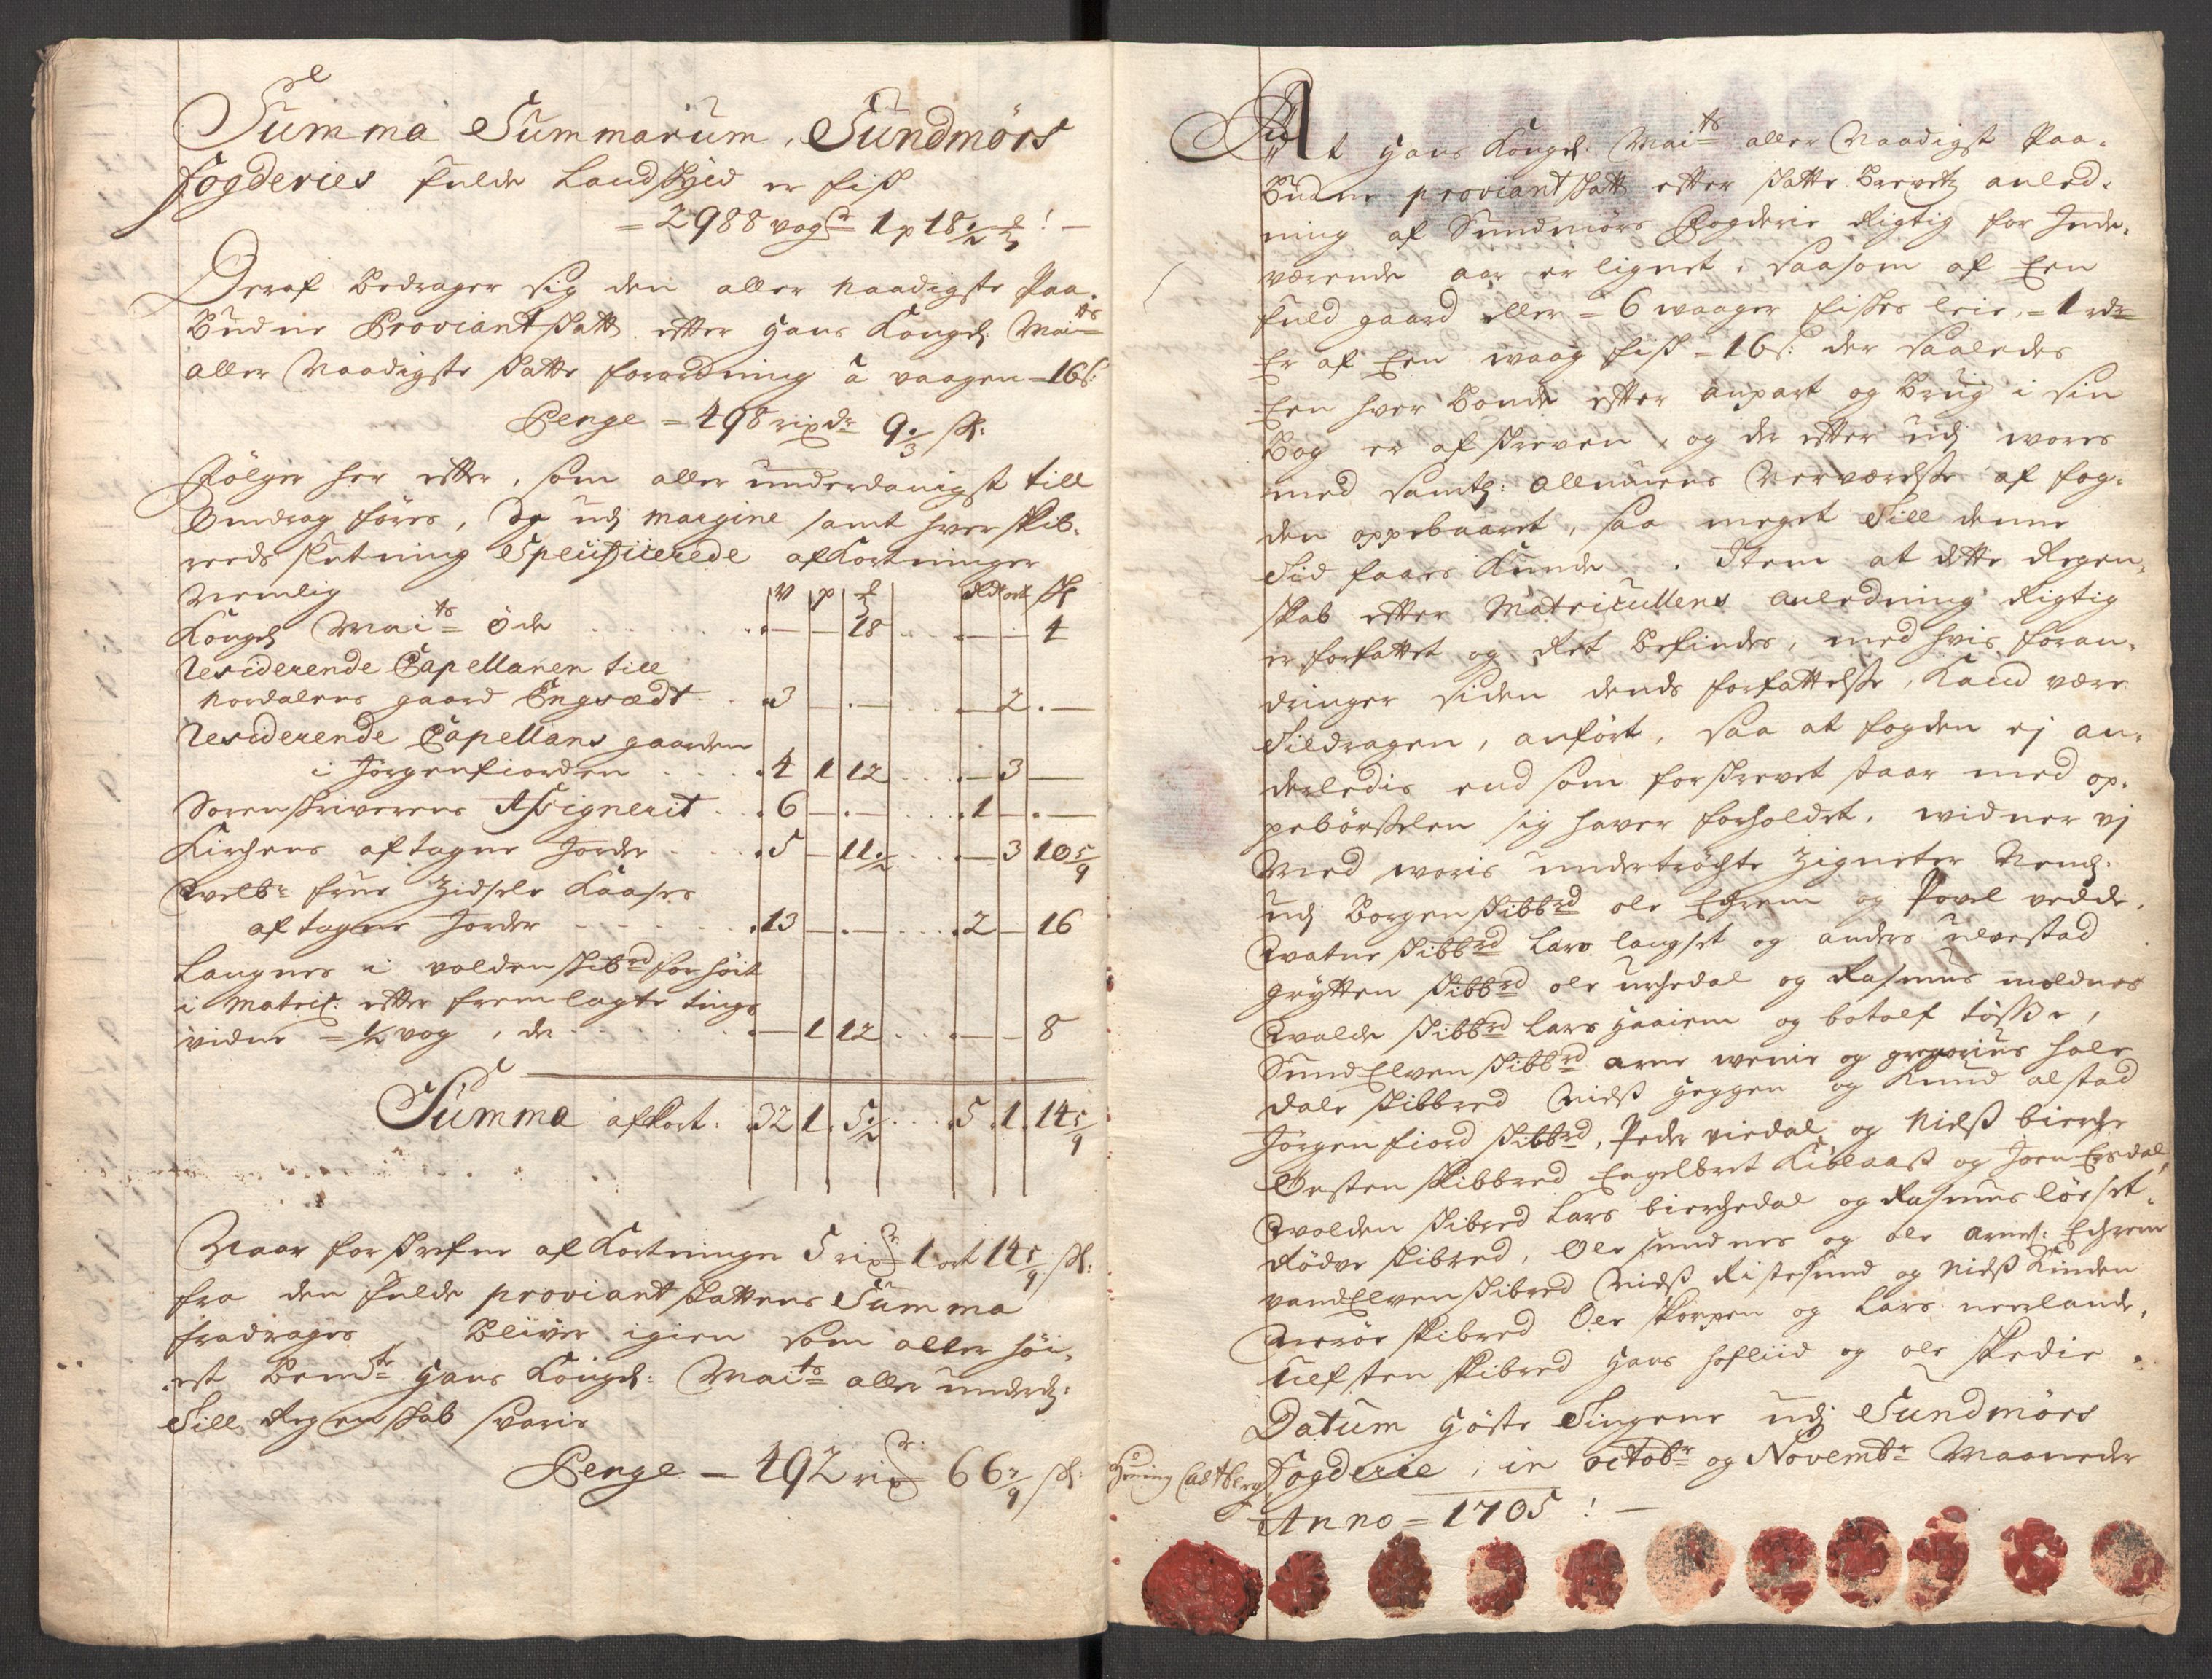 Summa Summarum, Sundmörs
fogderies fulde Landskyld er fisk
= 2988 vog 1 p 18½ ℔ ! —
Deraf bedrager sig den aller naadigste Paa-
budne Proviant skatt efter Hans Kongl. Maits
aller Naadigste skatte forordning à vaagen = 16 s:
Penge = 498 rixdr 9⅓ sk:
Fölger her efter, som aller underdanigst till
Omdrag föres, de udj margine samt hver skib-
reeds slutning Specificerede afkortninger
Nemlig v p ℔ Rd ort sk
Kongl Maits öde — — 18 — — 4
Residerende Capellanen till
Nordalens gaard Engsædt 3 — — — 2 —
Residerende Capellans gaarden
i Jörgenfiorden 4 1 12 — 3 —
Sorenskriverens Assignerit 6 — — 1 — —
Kirchens aftagne Jorder 5 — 11½ — 3 10 5/9
Welbr frue Zidsele Kaases
aftagne Jorder 13 — — 2 — 16
Langnes i volden skibrd for höit
i Matric. efter fremlagte tings
vidne = ½ vog, de — 1 12 — — 8
Summa afkort. 32 1 5½ 5 1 14 5/9
Naar forskrefne afkortninger 5 rixdr 1 ort 14 5/9 sk:
fra den fulde proviant skattens Summa
fradrages, bliver igien som aller höi-
est bemte Hans Kongl: Maits aller underd:
Till Regenskab svaris
Penge = 492 rixdr 66 7/9 sk:
At Hans Kongl. Maits aller Naadigst Paa-
budne proviant skatt efter skatte brevets anled-
ning af Sundmörs Fogderie Rigtig for Inde-
værende aar er lignet, saasom af Een
fuld gaard eller = 6 waager fiskes leie, = 1 rdr
Er af Een waag fisk = 16 s: der saaledes
Een hver bonde efter anpart og brug i sin
bog er afskreven, og der efter udj wores
med samtl: Allmuens Nerværelse af fog-
den oppebaaret, saa meget Till denne
Tid faaes kunde. Item at dette Regen-
skab efter Matricullens anledning Rigtig
er forfattet og Ret befindes, med hvis foran-
dringer siden dends forfattelse, Kand være
Tildragen, anfört, saa at fogden ej an-
derledis end som forskrevet staar med op-
pebörselen sig haver forholdet. widner vj
Med woris undertröchte Zigneter Neml:
udj Borgen skibbrd ole Echrem og Povel vedde,
Watne skibbrd Lars langset og anders ulvestad
Grytten skibbrd ole urhedal og Rasmus moldnes
Walde skibbrd Lars Haaiem og botolf tösse,
SundElven skibbrd arne wenie og gregorius hole
Dale skibbred Nielß Heggen og Knud alstad
Jörgenfiord skibbrd, Peder viedal og Nielß bierche
Örsten skibbred Engelbret Kiblaaß og Joen Eesdal,
Wolden skibred Lars bierchedal og Rasmus lörset.
Rödve skibred, Ole sundnes og ole arnes: Echrem
vandElven skibred Nielß Ristesund og Nielß Kinden
Herröe skibred Ole skorpen og Lars neerlande,
Ulfsten skibred Hans hofliid og ole skedie.
Datum Höste Tingene udj Sundmörs
Fogderie, in octobr og Novembr Maaneder
Anno = 1705 ! —
Hening Castberg